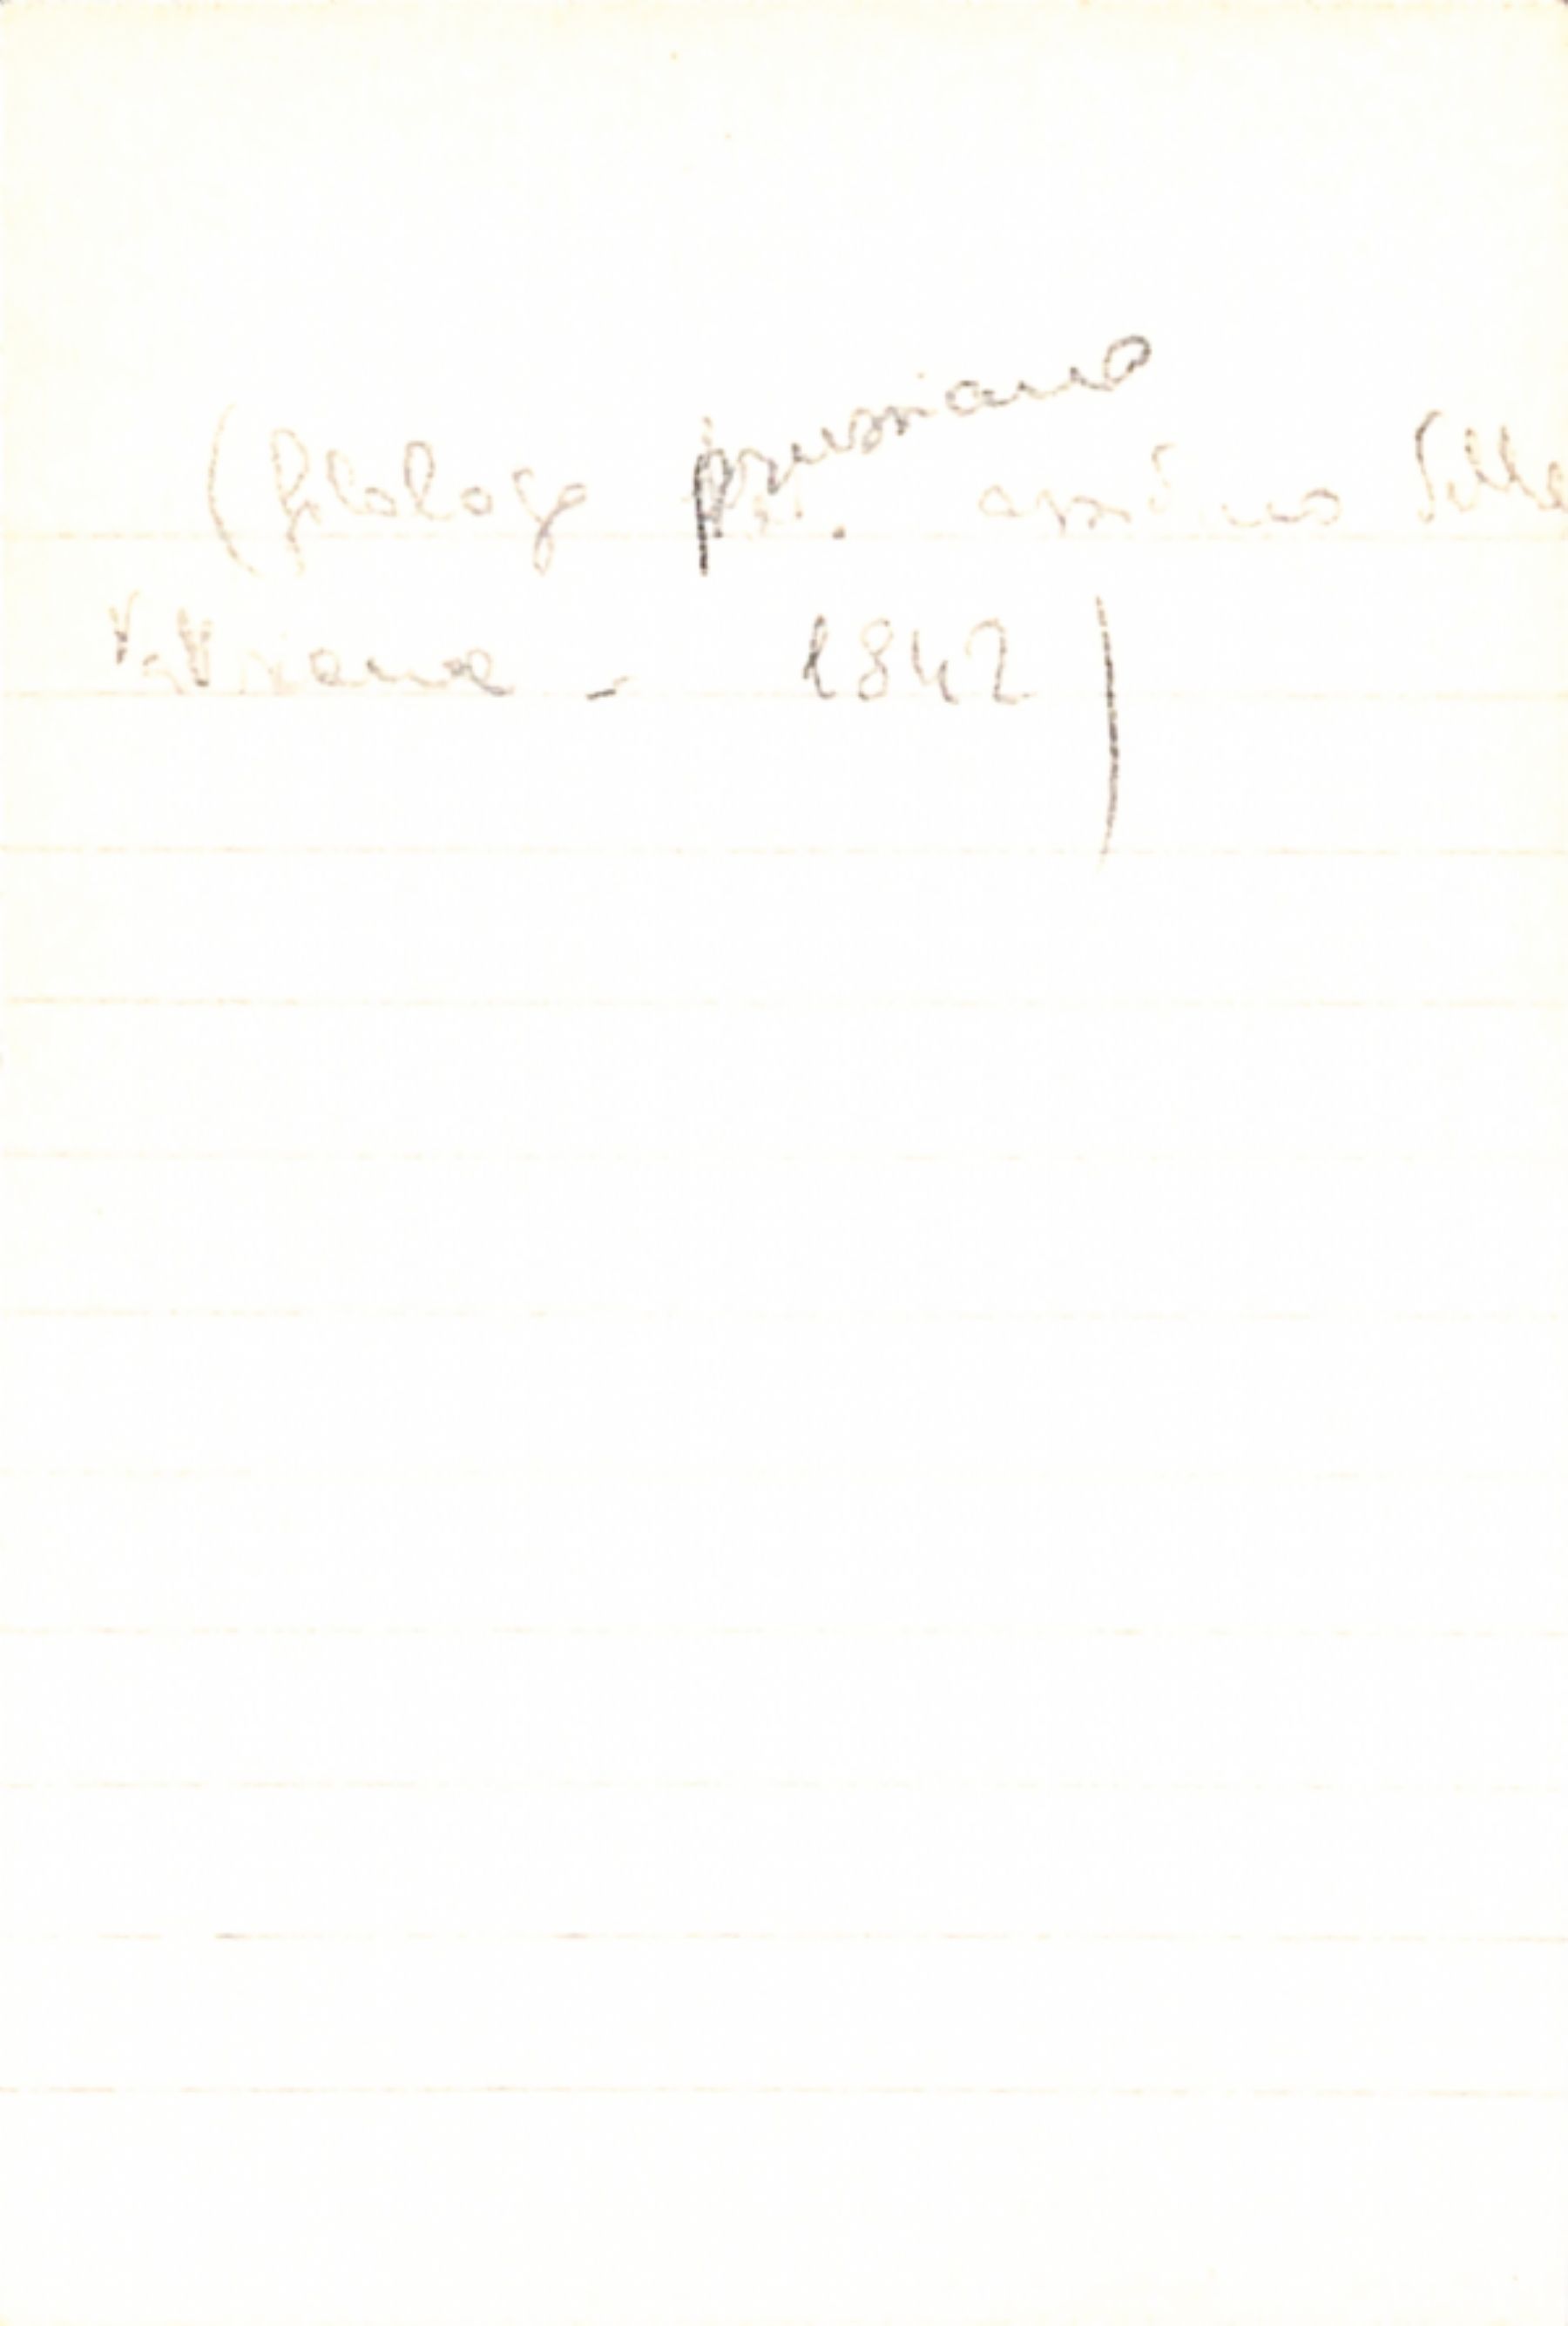 (filologo prussiano assiduo della
Vatticana - 1842)